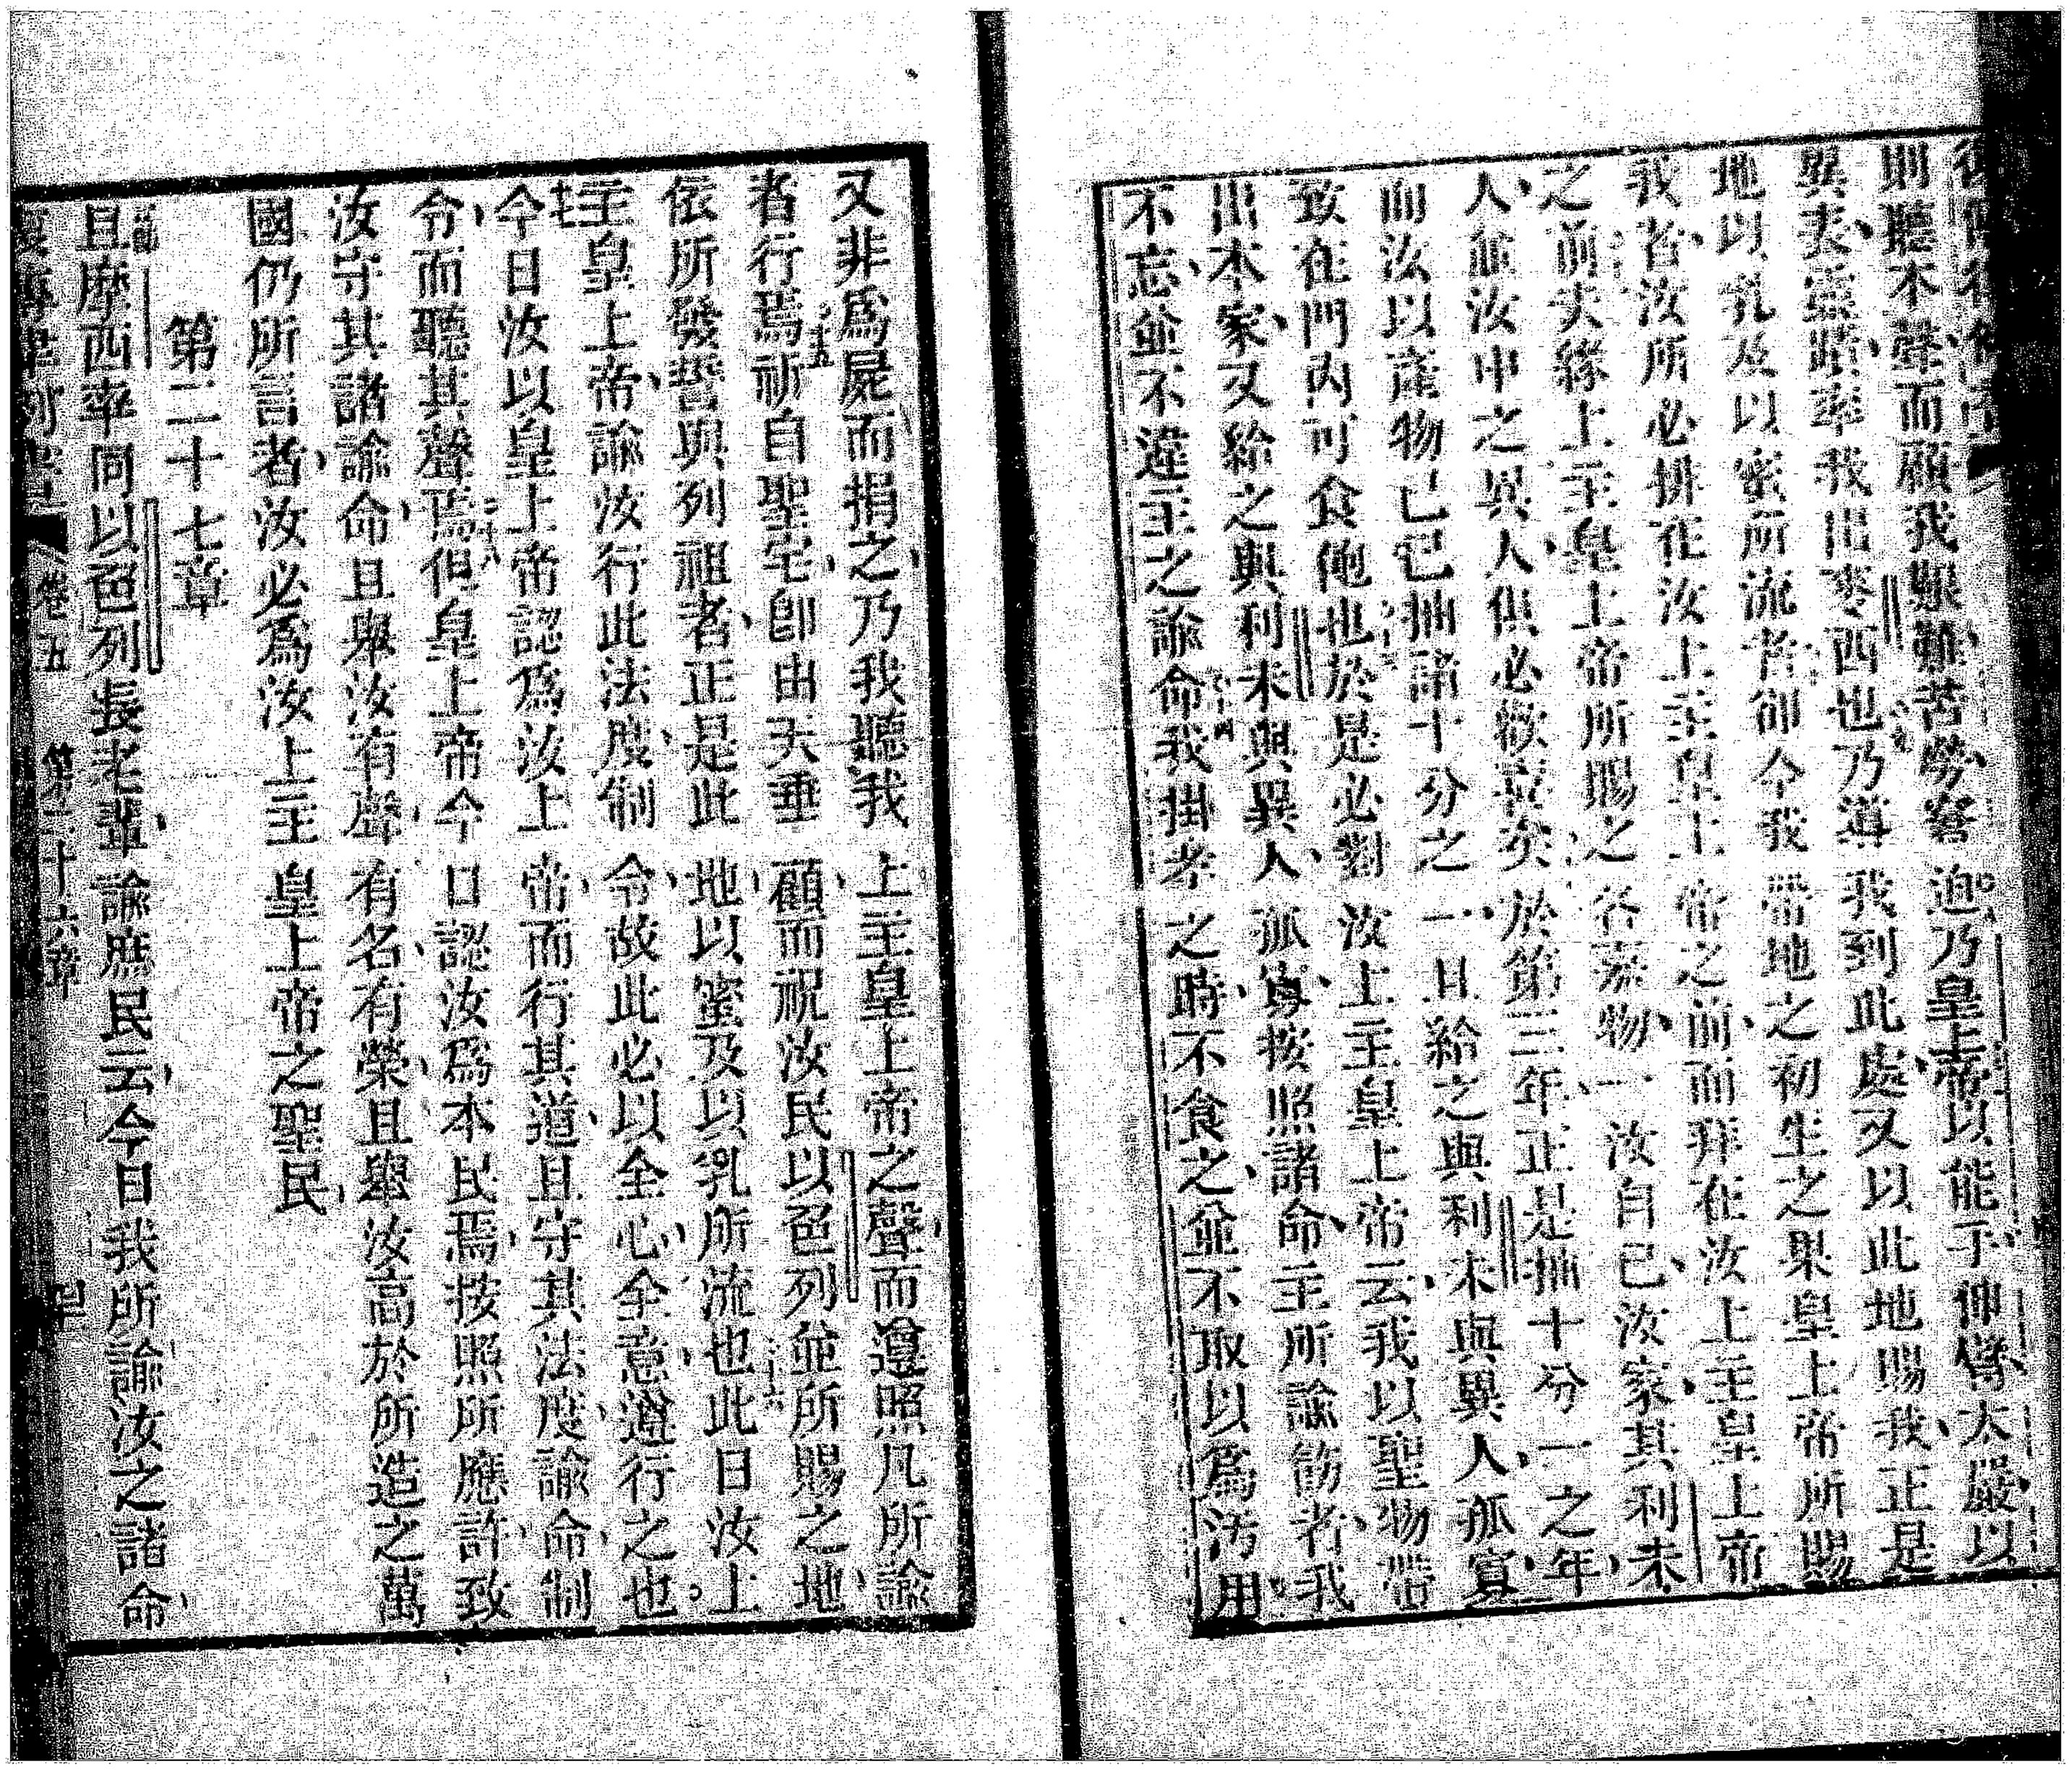 則聽本聲而顧我艱難苦勞窘迫乃皇上帝以能手伸臂太嚴以
異夫靈蹟率我出麥西也乃導我到此處又以此地賜我正是
地以乳及以蜜所流者卽今我帶地之初生之果皇上帝所賜
我者汝所必排在汝上主皇上帝之前而拜在汝上主皇上帝
之前夫緣上主皇上帝所賜之各嘉物一汝自己汝家其利未
人並汝中之異人俱必歡喜矣於第三年正是抽十分一之年
而汝以產物已抽諸十分之一且給之與利未與異人孤寡
致在門內可食飽也於是必對汝上主皇上帝云我以聖物帶
出本家又給之與利未與異人孤寡按照諸命主所諭飭者我
不忘並不違主之諭命我掛孝之時不食之並不取以爲汚用
又非爲屍而捐之乃我聽我上主皇上帝之聲而遵照凡所諭
者行焉二十五祈自聖宅卽由天垂顧而祝汝民以色列並所賜之地
依所發誓與列祖者正是此地以蜜及以乳所流也二十六此日汝上
主皇上帝諭汝行此法度制令故此必以全心全意遵行之也
二十七今日汝以皇上帝認爲汝上帝而行其道且守其法度諭命制
令而聽其聲焉二十八但皇上帝今日認汝爲本民焉按照所應許致
汝守其諸諭命且舉汝有聲有名有榮且舉汝高於所造之萬
國仍所言者汝必爲汝上主皇上帝之聖民
第二十七章
且摩西率同以色列長老輩諭庶民云今日我所諭汝之諸命
卷五 第二十六章